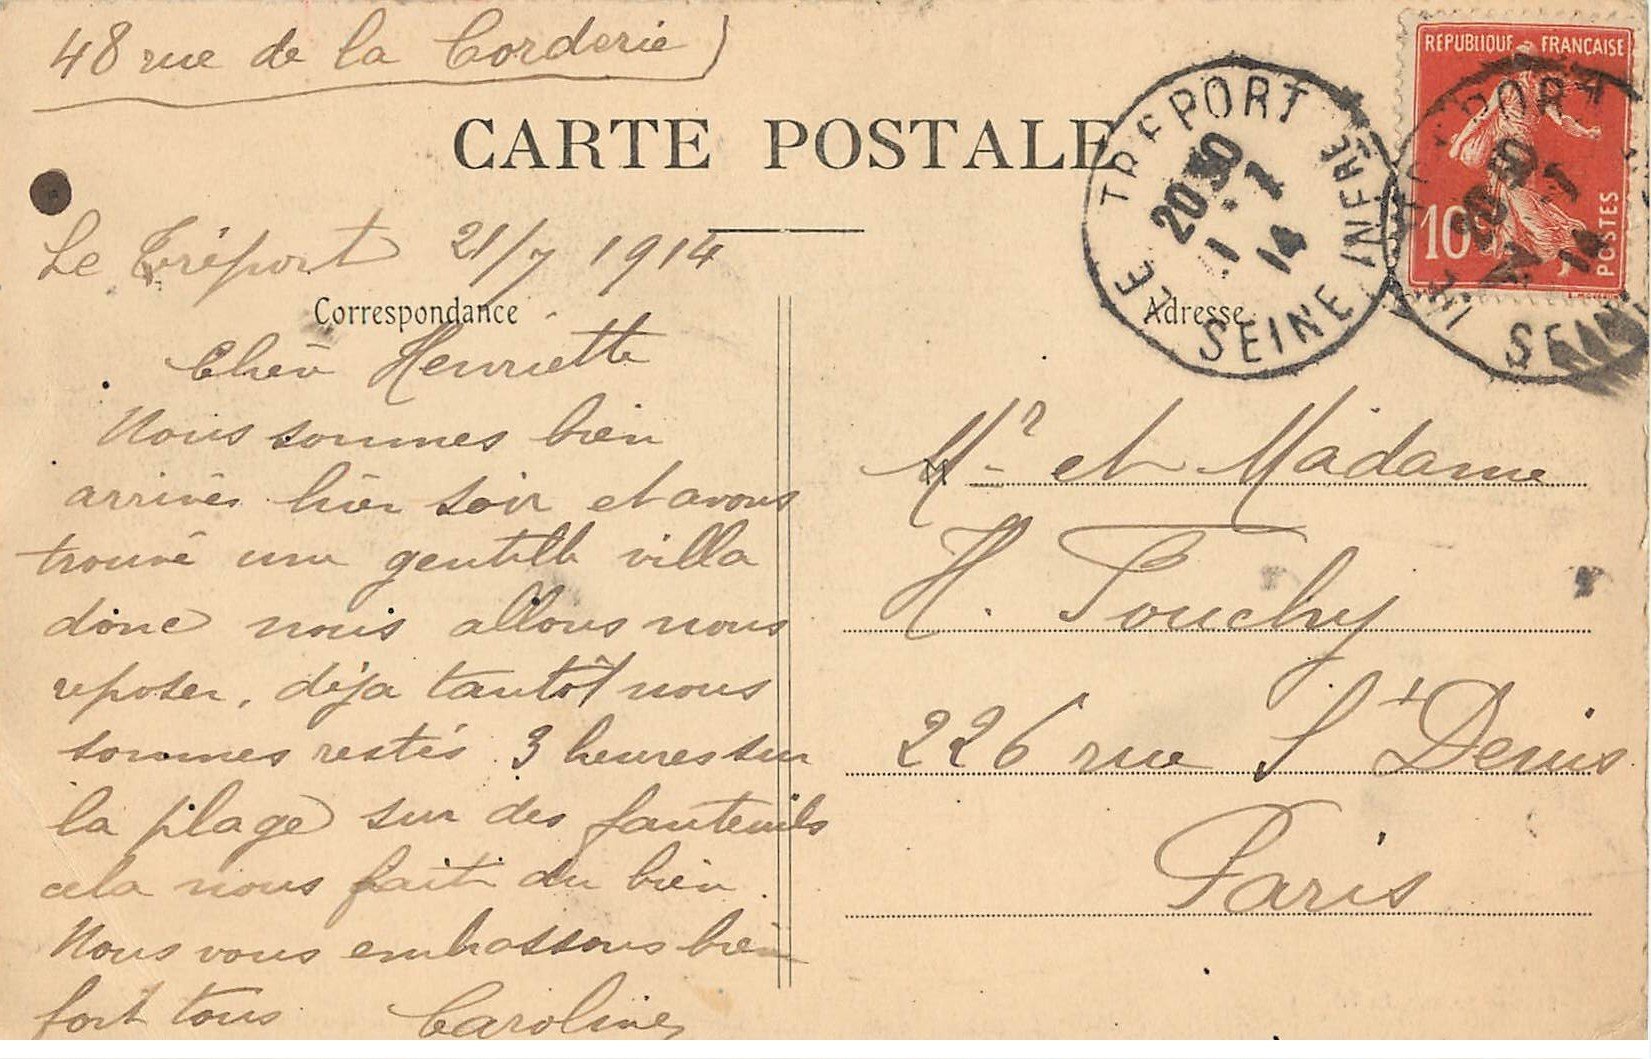 48 rue de la Corderie
CARTE POSTALE
RÉPUBLIQUE FRANÇAISE
10
POSTES
LE TREPORT
20 30
1 - 7
14
SEINE INFRE
LE TREPORT
20 30
14
SEINE
Le Tréport 21/7 1914
Correspondance
Adresse
Chère Henriette
Nous sommes bien
arrivés hier soir et avons
trouvé une gentille villa
donc nous allons nous
reposer, déja tantôt nous
sommes restés 3 heures sur
la plage sur des fauteuils
cela nous fait du bien.
Nous vous embrassons bien
fort tous Caroline
M
Mr et Madame
H. Touchy
226 rue St Denis
Paris